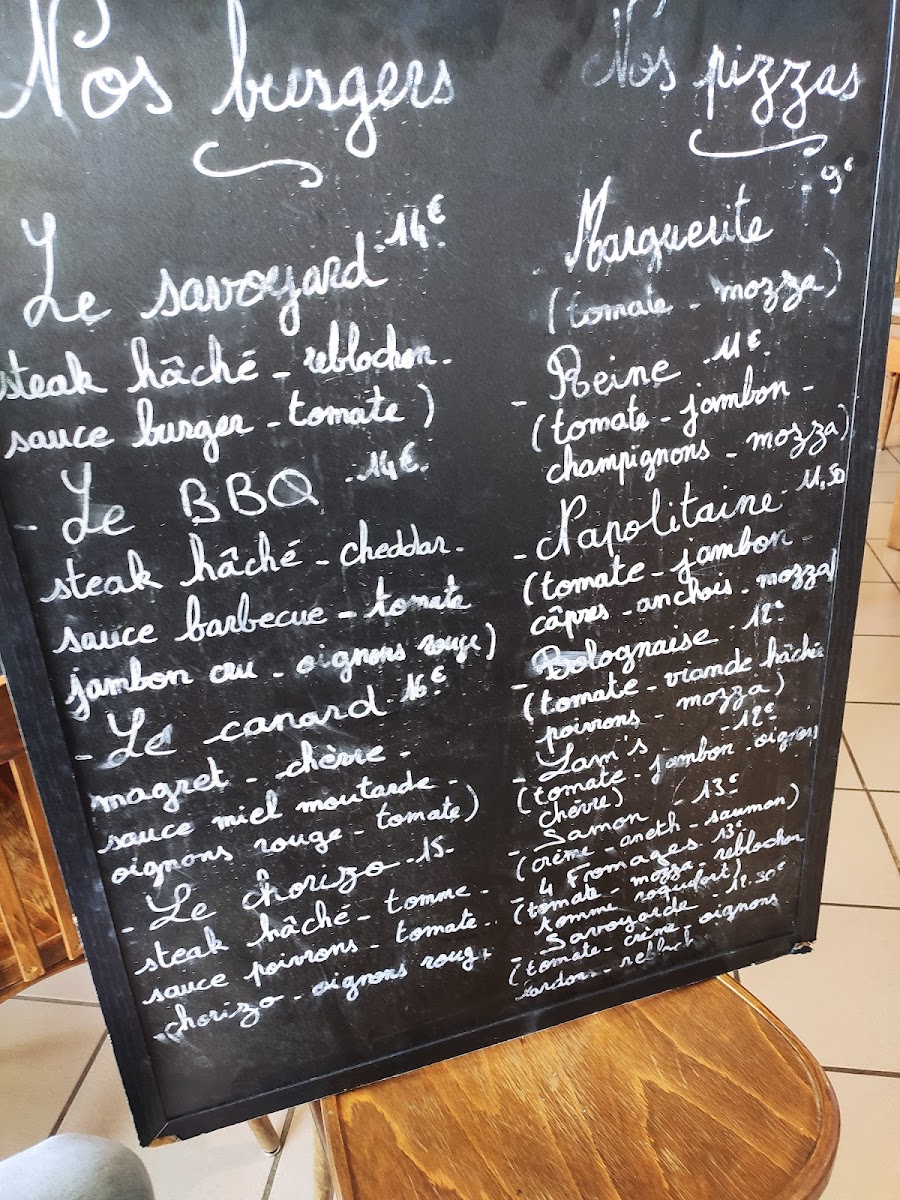 Nos burgers
Le savoyard - 14€
steak hâché - reblochon -
sauce burger - tomate )
- Le BBQ - 14€
steak hâché - cheddar -
sauce barbecue - tomate
jambon cru - oignons rouge )
- Le canard - 16€
magret - chèvre -
sauce miel moutarde -
oignons rouge - tomate )
- Le chorizo - 15-
steak hâché - tomme -
sauce poivrons - tomate -
chorizo - oignons rouge
Nos pizzas
- 9€
Marguerite
(tomate - mozza)
- Reine - 11€
(tomate - jambon -
champignons - mozza)
- Napolitaine - 11,50
(tomate - jambon -
câpres - anchois - mozza)
- Bolognaise - 12€
(tomate - viande hâchée
poivrons - mozza )
- Yam's - 12€
(tomate - jambon - oignons
chèvre)
- Samon - 13€
(crème - aneth - saumon)
- 4 Fromages - 13€
(tomate - mozza - reblochon
tomme roquefort)
- Savoyarde - 12.50€
(tomate - crème - oignons
lardons - rebloch